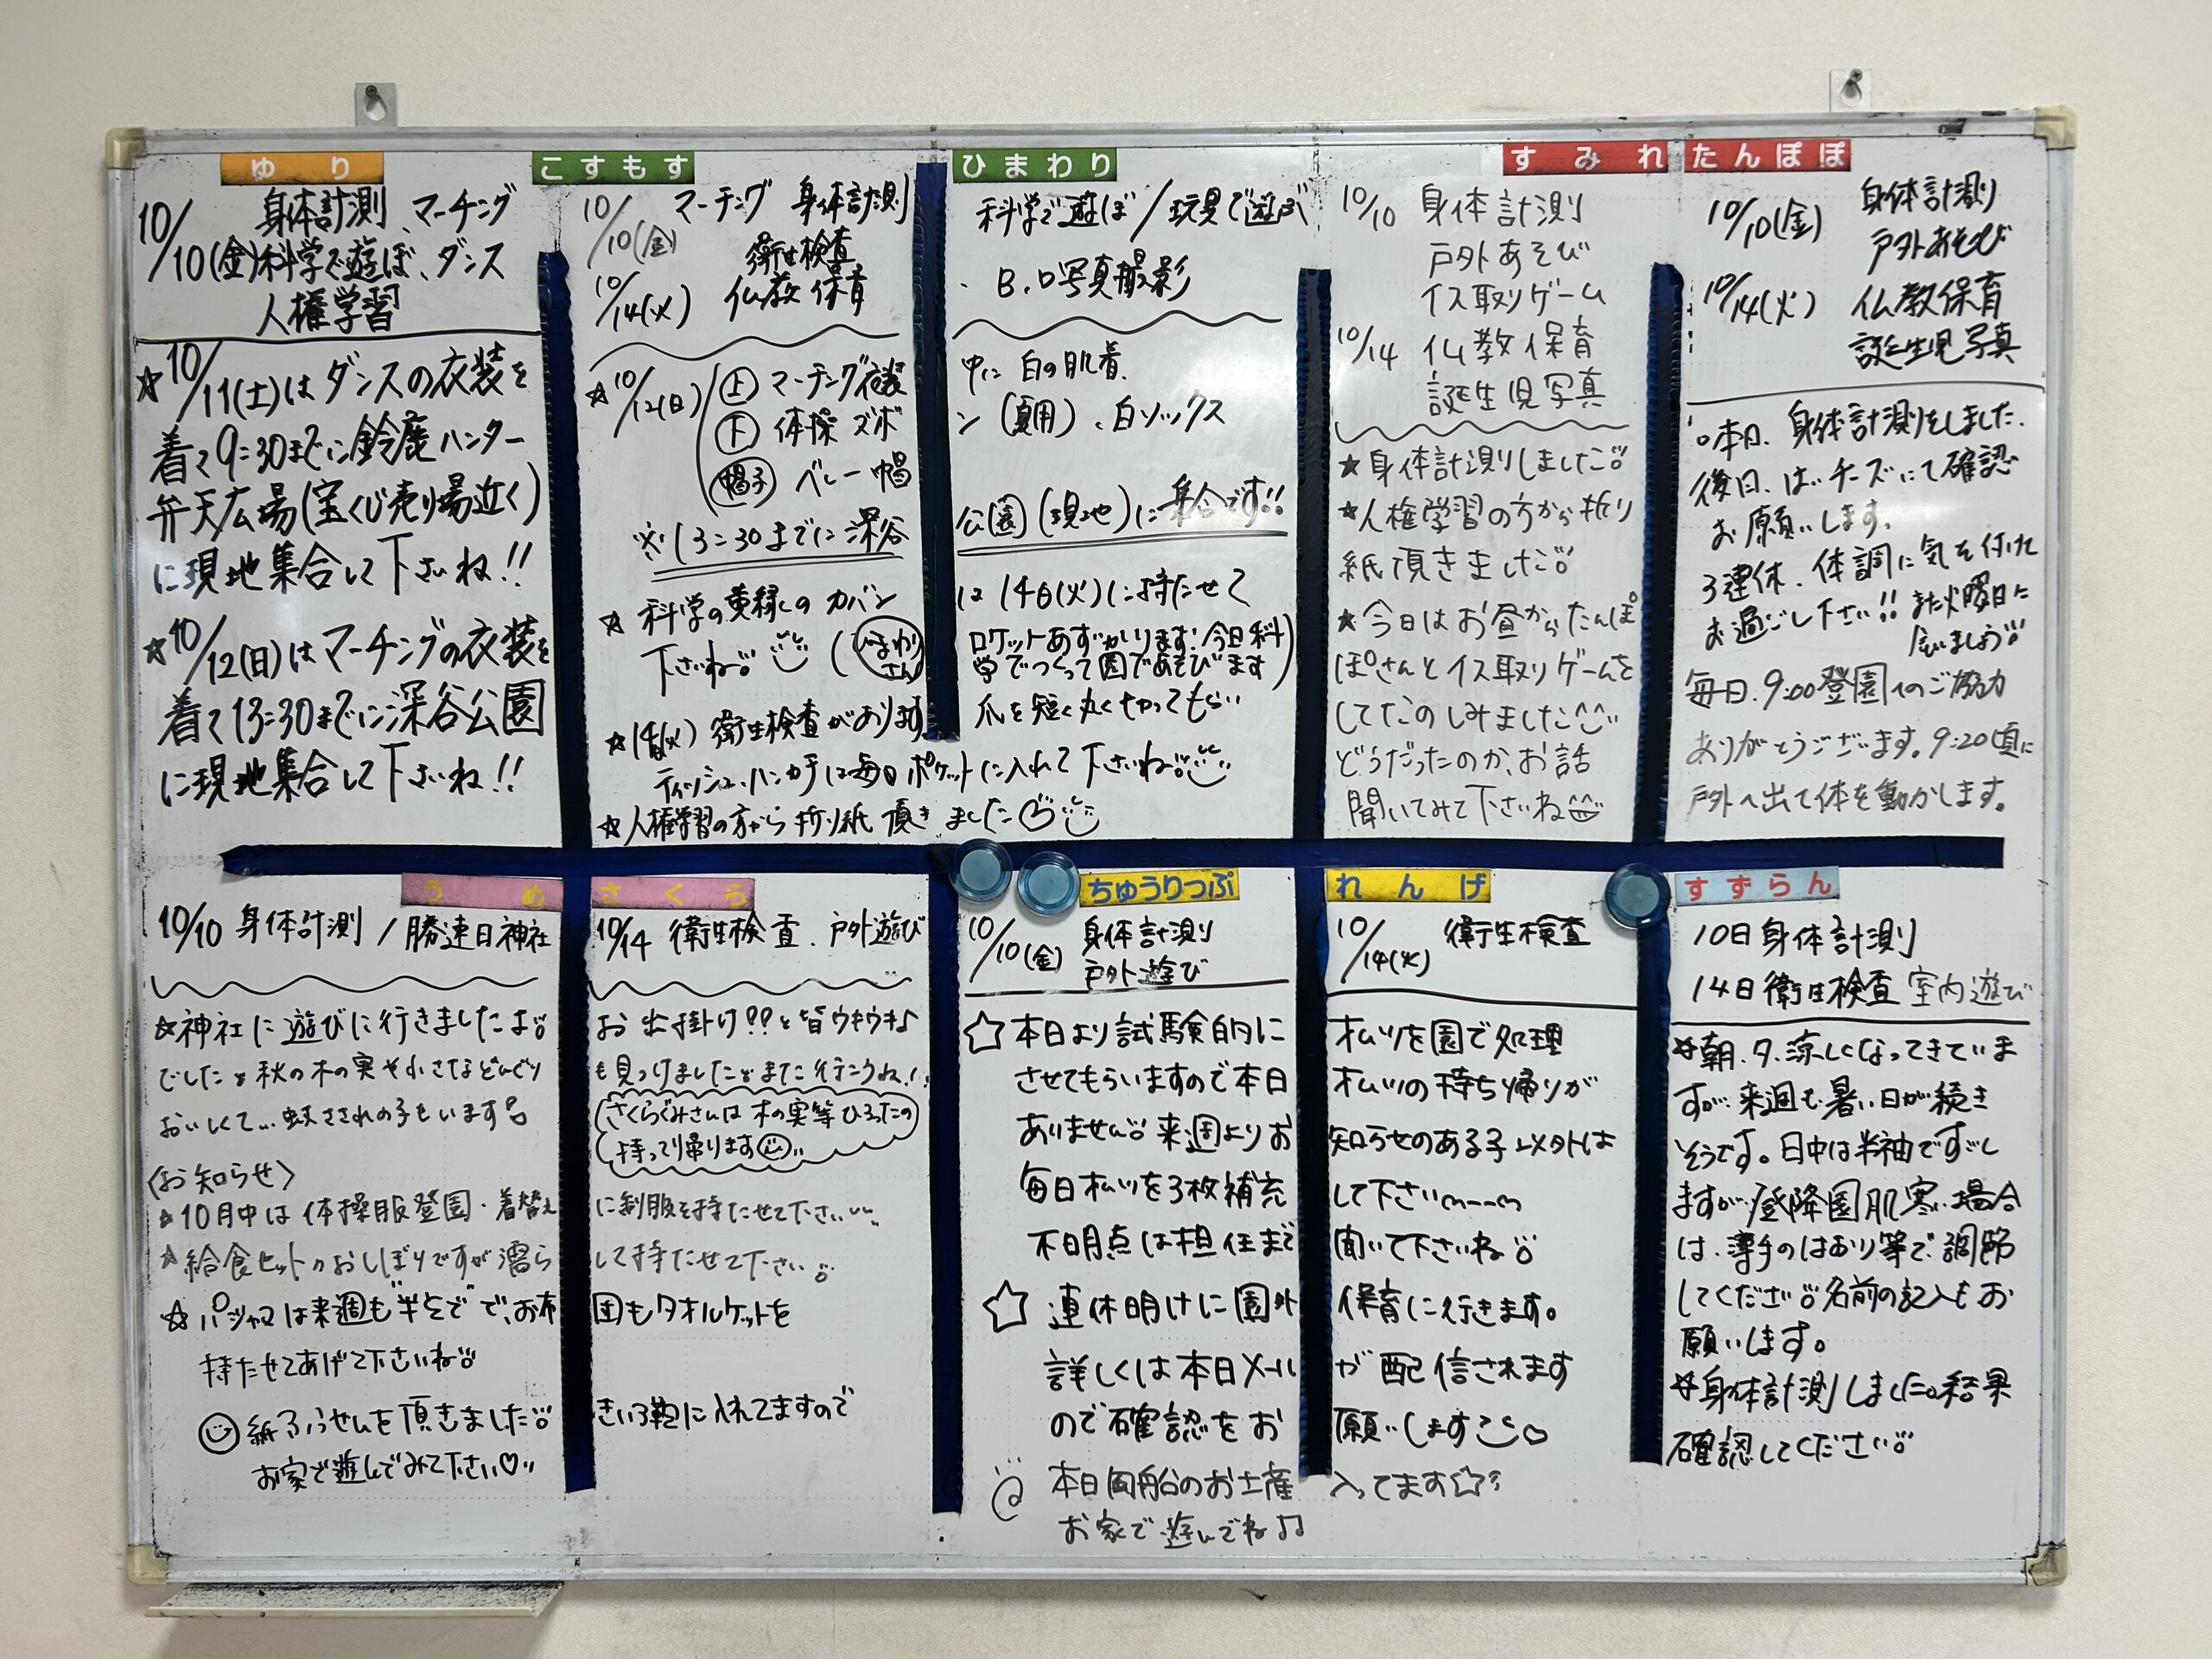 ゆり
10/10(金) 身体計測、マーチング
科学で遊ぼ、ダンス
人権学習
☆10/11(土)はダンスの衣装を
着て9:30までに鈴鹿ハンター
弁天広場(宝くじ売り場近く)
に現地集合して下さいね!!
☆10/12(日)はマーチングの衣装を
着て13:30までに深谷公園
に現地集合して下さいね!!
こすもす ひまわり
10/10(金) マーチング 身体計測 科学で遊ぼ/玩具で遊ぶ
10/14(火) 衛生検査、
仏教保育、B.D写真撮影
☆10/12(日) (上)マーチング衣装 中に白の肌着、
(下)体操ズボン(夏用)、白ソックス
(帽子)ベレー帽
※13:30までに深谷公園(現地)に集合です!!
☆科学の黄緑のカバンは14日(火)に持たせて
下さいね (ひまわりさん ロケットあずかります!今日科学でつくって園であそびます)
☆14日(火)衛生検査があります。爪を短く丸く切ってもらい
ティッシュ、ハンカチは毎日ポケットに入れて下さいね
☆人権学習の方から折り紙頂きました
すみれ
10/10 身体計測
戸外あそび
イス取りゲーム
10/14 仏教保育
誕生児写真
★身体計測しました
★人権学習の方から折り
紙頂きました
★今日はお昼からたんぽ
ぽさんとイス取りゲームを
してたのしみました
どうだったのか、お話
聞いてみて下さいね
たんぽぽ
10/10(金) 身体計測
戸外あそび
10/14(火) 仏教保育
誕生児写真
○本日、身体計測をしました。
後日、はいチーズにて確認
お願いします。
3連休、体調に気を付けて
お過ごし下さい!!また火曜日に
会いましょう
毎日.9:00登園へのご協力
ありがとうございます。9:20頃に
戸外へ出て体を動かします。
うめ さくら
10/10 身体計測/勝速日神社 10/14 衛生検査、戸外遊び
☆神社に遊びに行きましたよ お出掛け??と皆ウキウキ♪
でした 秋の木の実や小さなどんぐりも見つけました また行こうね!!
おいしくて… 蚊さされの子もいます
(さくらぐみさんは木の実等ひろったの
持って帰ります)
〈お知らせ〉
☆10月中は体操服登園・着替えに制服を持たせて下さい
☆給食セットのおしぼりですが濡らして持たせて下さい
☆パジャマは来週も半そでで、お布団もタオルケットを
持たせてあげて下さいね
紙ふうせんを頂きました きいろ鞄に入れてますので
お家で遊んでみて下さい♡
ちゅうりっぷ れんげ
10/10(金) 身体計測
戸外遊び
10/14(火) 衛生検査
☆本日より試験的にオムツを園で処理
させてもらいますので本日オムツの持ち帰りが
ありません 来週よりお知らせのある子以外は
毎日オムツを3枚補充して下さい
不明点は担任まで聞いて下さいね
☆連休明けに園外保育に行きます。
詳しくは本日メールが配信されます
ので確認をお願いします♡
本日風船のお土産入ってます☆
お家で遊んでね♫
すずらん
10日 身体計測
14日 衛生検査 室内遊び
朝、夕、涼しくなってきていま
すが、来週も暑い日が続き
そうです。日中は半袖ですごし
ますが、登降園肌寒い場合
は、薄手のはおり等で調節
してください 名前の記入もお
願いします。
身体計測しました。結果
確認してください